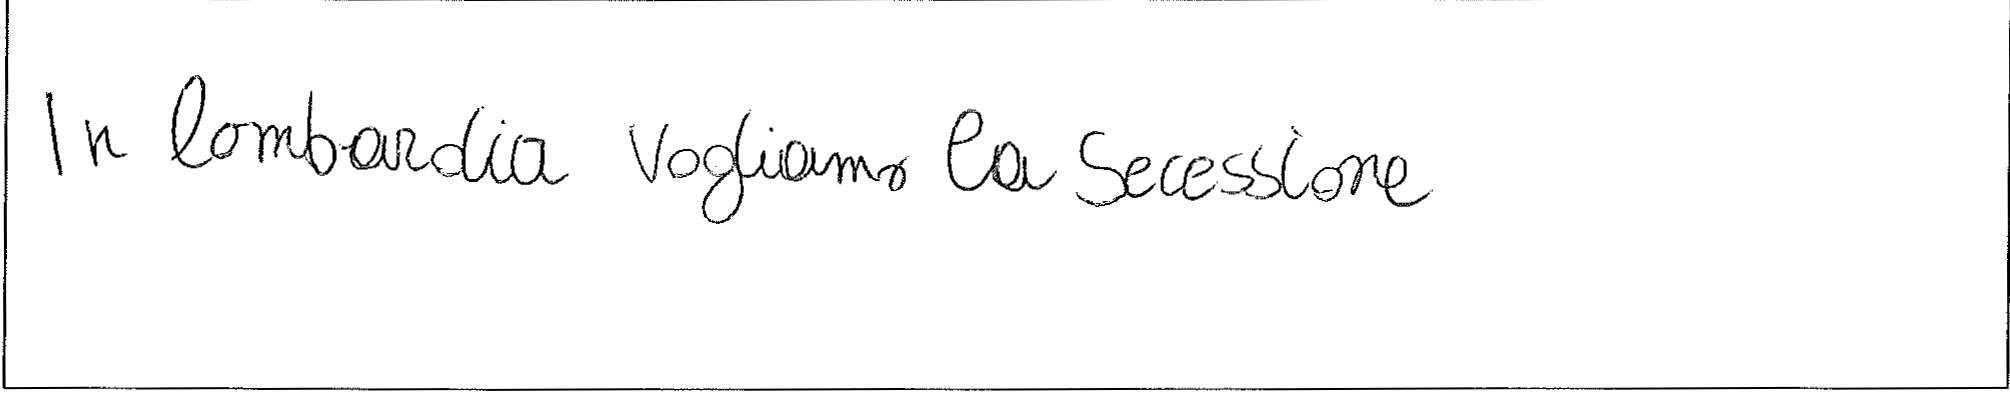 In lombardia vogliamo la secessione